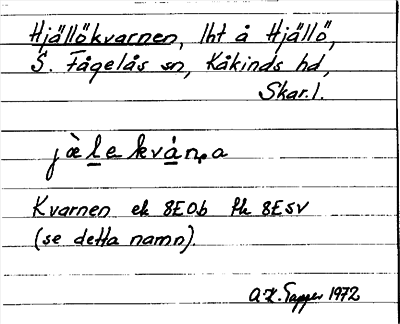 Hjällökvarnen, lht å Hjällö,
S. Fågelås sn, Kåkinds hd,
Skar.l.
jàle kván̥a
Kvarnen ek 8E0b fk 8E5v
(se detta namn).
A.K. Tapper 1972